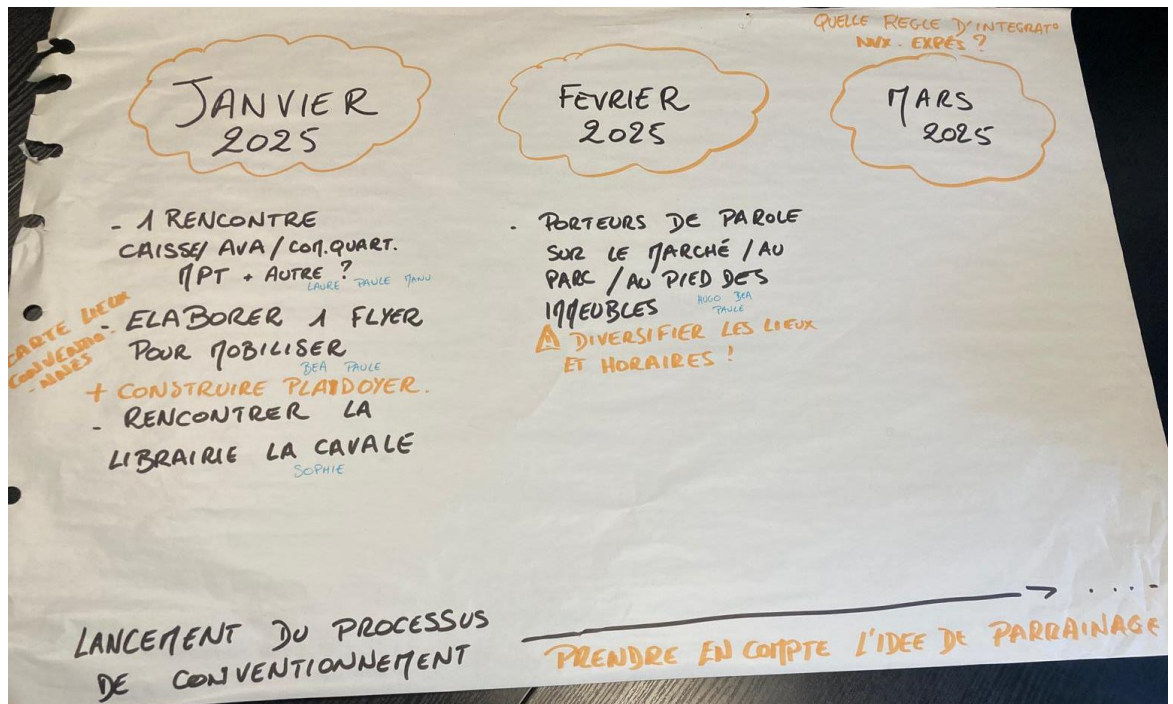 QUELLE REGLE D'INTEGRAT°
NVX. EXPES ?
JANVIER
2025
- 1 RENCONTRE
CAISSE/ AVA / COM. QUART.
MPT + AUTRE ?
LAURE PAULE MANU
CARTE LIEUX
CONVENTIO-
-NNES
- ELABORER 1 FLYER
POUR MOBILISER
BEA PAULE
+ CONSTRUIRE PLAIDOYER.
- RENCONTRER LA
LIBRAIRIE LA CAVALE
SOPHIE
FEVRIER
2025
- PORTEURS DE PAROLE
SUR LE MARCHÉ / AU
PARC / AU PIED DES
IMMEUBLES
HUGO BEA
PAULE
⚠ DIVERSIFIER LES LIEUX
ET HORAIRES !
MARS
2025
LANCEMENT DU PROCESSUS
DE CONVENTIONNEMENT
PRENDRE EN COMPTE L'IDEE DE PARRAINAGE